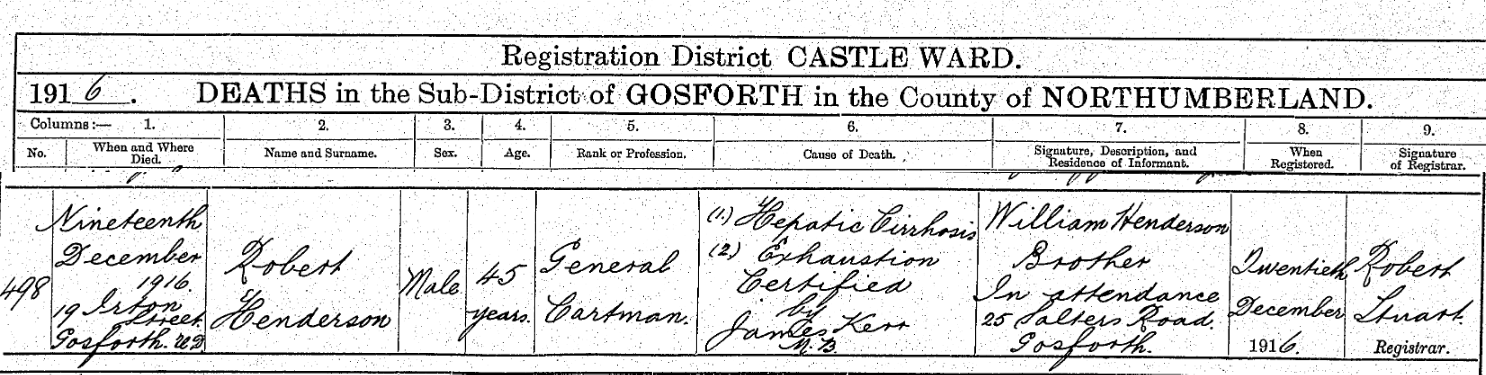 Registration District CASTLE WARD.
1916. DEATHS in the Sub-District of GOSFORTH in the County of NORTHUMBERLAND.
Columns:— 1. 2. 3. 4. 5. 6. 7. 8. 9.
No. When and Where Died. Name and Surname. Sex. Age. Rank or Profession. Cause of Death. Signature, Description, and Residence of Informant. When Registered. Signature of Registrar.
498
Nineteenth
December
1916
19 Irton
Street
Gosforth. U D
Robert
Henderson
Male
45
years.
General
Cartman.
(1) Hepatic Cirrhosis
(2) Exhaustion
Certified
by
James Kerr
M.B.
William Henderson
Brother
In attendance
25 Salters Road.
Gosforth.
Twentieth
December
1916.
Robert
Stuart.
Registrar.